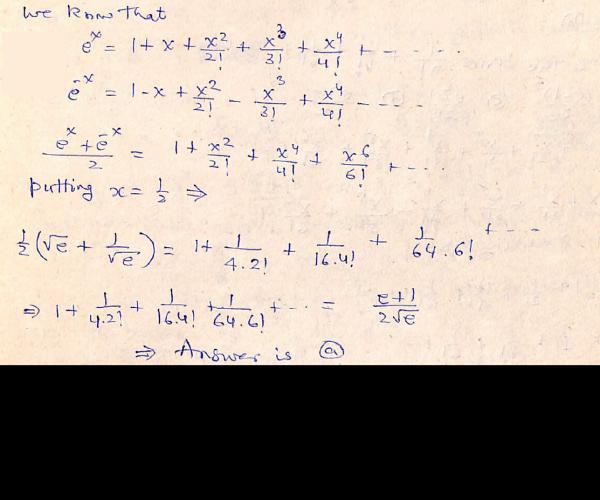 we know that
e^x = 1 + x + x²/2! + x³/3! + x⁴/4! + - - - - -
e^-x = 1 - x + x²/2! - x³/3! + x⁴/4! - - - - -
(e^x + e^-x)/2 = 1 + x²/2! + x⁴/4! + x⁶/6! + - - - -
putting x = 1/2 ⇒
1/2(√e + 1/√e) = 1 + 1/4.2! + 1/16.4! + 1/64.6! + - - -
⇒ 1 + 1/4.2! + 1/16.4! + 1/64.6! + - - - = e+1/2√e
⇒ Answer is ⓐ